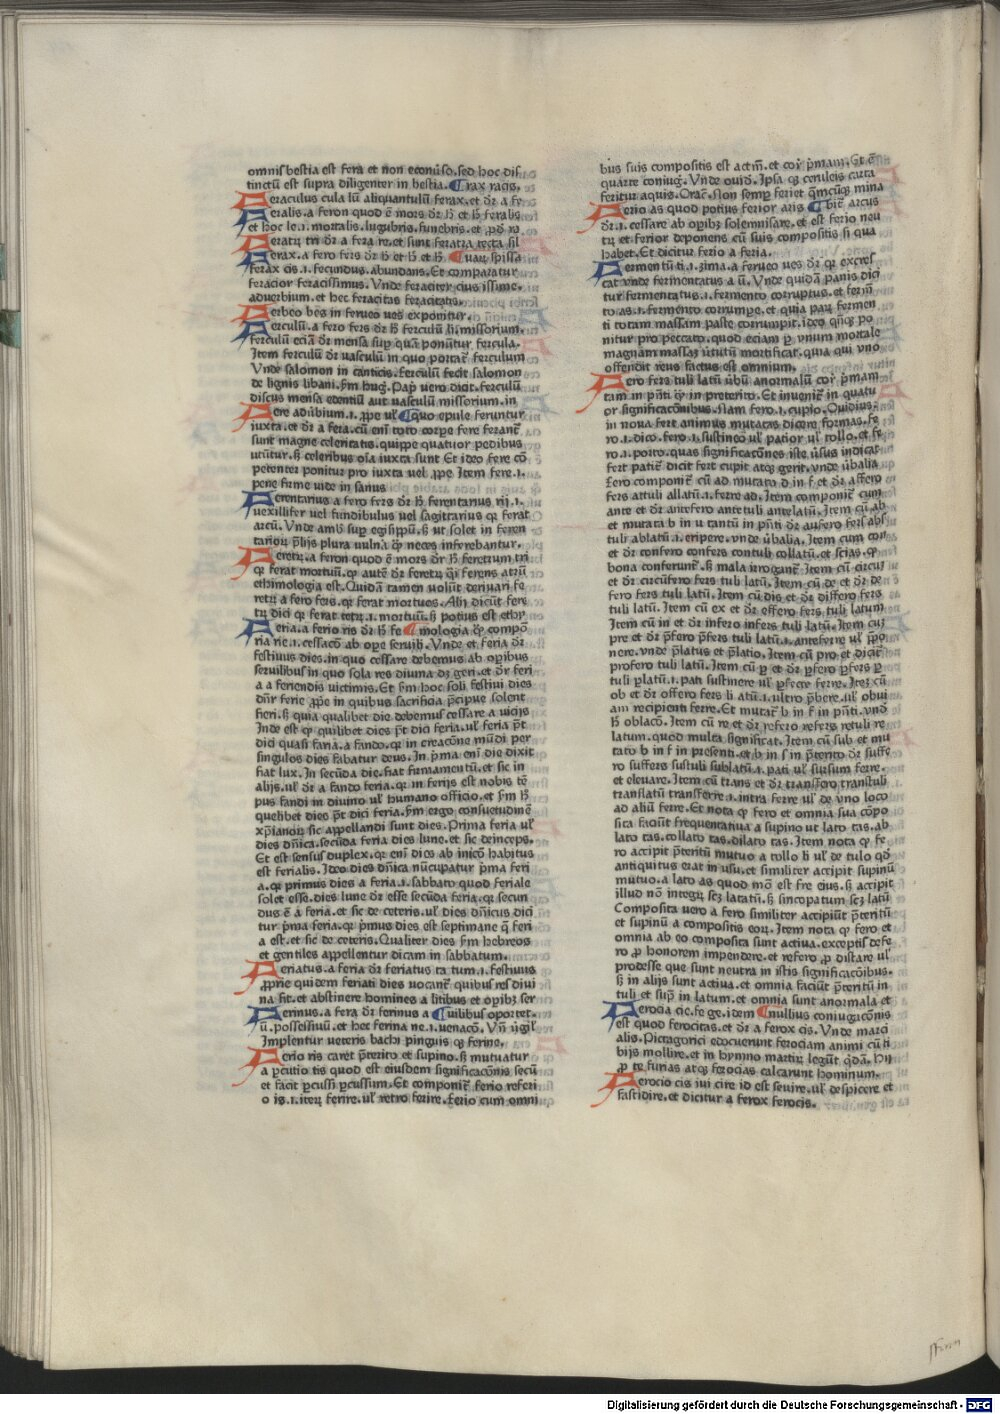 omnis bestia est fera et non econũso.sed hoc dis
tinctũ est supra diligenter in bestia. rax racis.
Feraculus cula lũ aliquantulũ ferax.et dr̃ a fe
Feralis.a feron quod ẽ mors dr̃ h̃ et h̃ feralis
et hoc le.i.mortalis.lugubris.funebris.et
Feratrũ tri dr̃ a fera re.et sunt feratra tecta sil
Ferax.a fero fers dr̃ h̃ et h̃ et h̃ uarũ spissa
ferax cis.i.fecundus.abundans.Et comparatur
feracior feracissimus.Vnde feraciter cius issime.
aduerbium.et hec feracitas feracitatis.
Ferbeo bes in ferueo ues exponitur.
Ferculũ.a fero fers dr̃ h̃ ferculũ li.missorium.
ferculũ eciã dr̃ mensa sup̱ quã ponũtur fercula.
Item ferculũ dr̃ vasculũ in quo portat̃ ferculum
Vnde salomon in canticis.ferculũ fecit salomon
de lignis libani.fm̃ hug̃.Pap̃ vero dicit.ferculũ
discus mensa edentiũ aut vasculũ missorium.in
Fere adũbium.i.ꝓpe ul̃ quo epule feruntur
iuxta.et dr̃ a fera.cũ enĩ toto corpe fere ferant̃
sunt magne celeritatis.quippe quatuor pedibus
utũtur.s̃ celeribus oĩa iuxta sunt Et ideo fere cõ
petenter ponitur pro iuxta uel ꝓpe Item fere.i.
pene ferme vide in sanus
Ferentarius a fero fers dr̃ h̃ ferentarius rij.i.
vexillifer vel fundibulus vel sagittarius qr̃ ferat
arcũ.Vnde amb̃ sup̱ egisippũ.s̃ ut solet in feren
tariorũ p̃lijs plura uulña qp̃ neces inferebantur.
Feretrũ.a feron quod ẽ mors dr̃ h̃ feretrum tri
qr̃ ferat mortuũ.qr̃ autẽ dr̃ feretrũ qĩ ferens atrũ
ethimologia est.Quidã tamen volũt deriuari fe
retrũ a fero fers.qr̃ ferat mortuos.Alij dicũt fere
trũ dici qr̃ ferat tetrũ.i.mortuũ.s̃ potius est ethy
Feria.a ferio ris dr̃ h̃ fe mologia qp̃ compõ
ria rie.i.cessacõ ab ope seruili.Vnde et feria dr̃
festiuus dies.in quo cessare debemus ab op̱ibus
seruilibus in quo sola res diuina dz̃ geri.et dr̃ feri
a a feriendis victimis.Et fm̃ hoc soli festiui dies
dñr ferie ꝓpe in quibus sacrificia p̃cipue solent
fieri.s̃ quia qualibet die debemus cessare a uicijs
Inde est qp̃ quilibet dies p̃t dici feria.ul̃ feria p̃t
dici quasi faria.a fando.qr̃ in creacõne mũdi per
singulos dies fabatur deus.In p̃ma enĩ die dixit
fiat lux.In secũda die.fiat firmamentũ.et sic in
alijs.ul̃ dr̃ a fando feria.qr̃ in ferijs est nobis tẽ
pus fandi in diuino ul̃ humano officio.et fm̃ h̃
quelibet dies p̃t dici feria.fm̃ ergo consuetudinẽ
xp̃ianorũ sic appellandi sunt dies.Prima feria ul̃
dies dñica.secũda feria dies lune.et sic deinceps.
Et est sensus duplex.qr̃ enĩ dies ab inicõ habitus
est ferialis.Ideo dies dñica nũcupatur p̃ma feri
a.qr̃ primus dies a feria.i.sabbato quod feriale
solet esse.dies lune dr̃ esse secũda feria.qr̃ secun
dus ẽ a feria.et sic de ceteris.ul̃ dies dñicus dici
tur p̃ma feria.qr̃ p̃mus dies est septimane q̃ feri
a est.et sic de ceteris.Qualiter dies fm̃ hebreos
et gentiles appellentur dicam in sabbatum.
Feriatus.a feria dr̃ feriatus ta tum.i.festiuus
ꝓprie quidem feriati dies vocant̃ quibus res diui
na fit.et abstinere homines a litibus et op̱ibz ser
Ferinus.a fera dr̃ ferinus a uilibus oportet.
ũ.possessiuũ.et hec ferina ne.i.uenacõ.Vñ ũgil̃
Implentur ueteris bachi pinguis qz ferine.
Ferio ris caret p̃terito et supino.s̃ mutuatur
a p̱cutio tis quod est eiusdem significacõnis secũ
et facit p̱cussi p̱cussum.Et componit̃ ferio referi
o is.i.iterũ ferire.ul̃ retro ferire.ferio cum omni
bus suis compositis est actm̃.et corr̃ p̃mam.Et ẽ
quarte coniug̃.Vnde ouid̃.Ipsa qz ceruleis carta
feritur aquis.Orac̃.Non semp̱ feriet qm̃cũqz mina
Ferio as quod potius ferior aris bit̃ arcus
dr̃.i.cessare ab op̱ibz solemnisare.et est ferio neu
trũ et ferior deponens cũ suis compositis si qua
habet.Et dicitur ferio a feria.
Fermentũ ti.i.zima.a ferueo ues dr̃ qr̃ excres
cat vnde fermentatus a ũ.Vnde quidã panis dici
tur fermentatus.i.fermento corruptus.et ferm̃
to as.i.fermento corrump̱e.et quia parũ fermen
ti totam massam paste corrumpit.ideo qñqz po
nitur pro peccato.quod eciam p̱ vnum mortale
magnam massaz ũtutũ mortificat.quia qui vno
offendit reus factus est omnium.
Fero fers tuli latũ ũbũ anormalũ corr̃ p̃mam
tam in p̃nti qp̃ in preterito.Et inuenit̃ in quatu
or significacõnibus.Nam fero.i.cupio.Ouidius.
in noua fert animus mutatas dicere formas.fe
ro.i.dico.fero.i.sustineo ul̃ patior ul̃ tollo.et fe
ro.i.porto.quas significacõnes iste ũsus indicat
fert patit̃ dicit fert cupit atqz gerit.vnde ũbalia
fero componit̃ cũ ad mutato d in f et dr̃ affero
fers attuli allatũ.i.ferre ad.Item componit̃ cum
ante et dr̃ antefero antetuli antelatũ.Item cũ ab
et mutata b in u tantũ in p̃nti dr̃ aufero fers abs
tuli ablatũ.i.eripere.vnde ũbalia.Item cum con
et dr̃ confero confers contuli collatũ.et scias.qp̃
bona conferunt̃.s̃ mala irrogant̃.Item cũ circuz
et dr̃ circũfero fers tuli latũ.Item cũ de et dr̃ de
fero fers tuli latũ.Item cũ dis et dr̃ differo fers
tuli latũ.Item cũ ex et dr̃ effero fers tuli latum
Item cũ in et dr̃ infero infers tuli latũ.Item cuz
pre et dr̃ p̃fero p̃fers tuli latũ.i.anteferre ul̃ ꝓpo
nere.vnde p̃latus et p̃latio.Item cũ pro et dicit̃
profero tuli latũ.Item cũ p̱ et dr̃ p̱fero p̱fers p̱
tuli p̱latũ.i.pati sustinere ul̃ p̱fecte ferre.Itez cũ
ob et dr̃ offero fers li atũ.i.ultro p̃bere.ul̃ obui
am recipienti ferre.Et mutat̃ b in f in p̃nti.vnd̃
h̃ oblacõ.Item cũ re et dr̃ refero refers retuli re
latum.quod multa significat.Item cũ sub et mu
tato b in f in presenti.et b in s in p̃terito dr̃ suffe
ro suffers sustuli sublatũ.i.pati ul̃ sursum ferre.
et eleuare.Item cũ trans et dr̃ transfero transtuli
translatũ transferre.i.intra ferre ul̃ de vno loco
ad aliũ ferre.Et nota qp̃ fero et omnia sua cõpo
sita faciũt frequentatiua a supino ut lato tas.ab
lato tas.collato tas.dilato tas.Item nota qp̃ fe
ro accipit p̃teritũ mutuo a tollo li ul̃ de tulo qd̃
antiquitus erat in usu.et similiter accipit supinũ
mutuo.a lato as quod mõ est fre eius.s̃ accipit
illud nõ integrũ scz latatũ.s̃ sincopatum scz latũ
Composita uero a fero similiter accipiũt p̃teritũ
et supinũ a compositis eorũ.Item nota qp̃ fero et
omnia ab eo composita sunt actiua.exceptis defe
ro ꝓ honorem impendere.et refero ꝓ distare ul̃
prodesse que sunt neutra in istis significacõibus.
s̃ in alijs sunt actiua.et omnia faciũt p̃teritũ in
tuli et sup̃ in latum.et omnia sunt anormala et
Ferocia cie.fe ge.idem nullius coniugacõnis
est quod ferocitas.et dr̃ a ferox cis.Vnde marci
alis.Pictagorici edocuerunt ferociam animi cũ ti
bijs mollire.et in hynno martirũ legũt̃ qd̃a. Hij
ꝓ te furias atqz ferocias calcarunt hominum.
Ferocio cis iui cire id est seuire.ul̃ despicere et
fastidire.et dicitur a ferox ferocis.
Digitalisierung gefördert durch die Deutsche Forschungsgemeinschaft - DFG